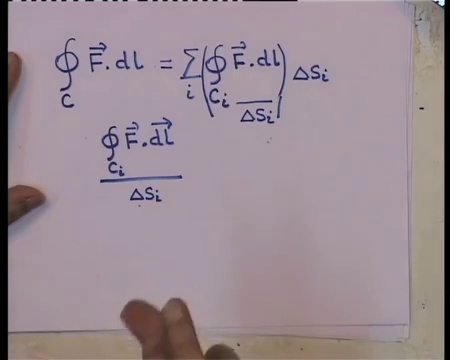 ∮_C F⃗.dl = Σ_i (∮_{C_i} F⃗.dl / ΔS_i) ΔS_i
∮_{C_i} F⃗.dl⃗ / ΔS_i